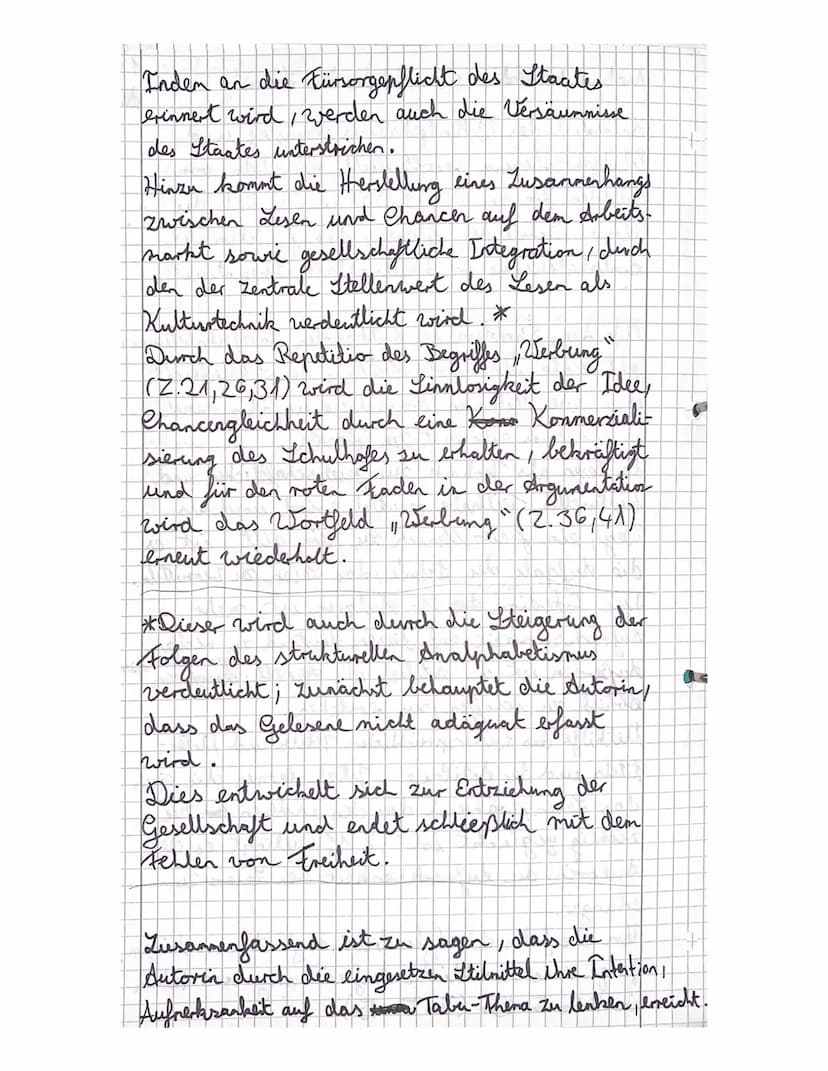 Indem an die Fürsorgepflicht des Staates
erinnert wird, werden auch die Versäumnisse
des Staates unterstrichen.
Hinzu kommt die Herstellung eines Zusammenhangs
zwischen Lesen und Chancen auf dem Arbeits-
markt sowie gesellschaftliche Integration, durch
den der zentrale Stellenwert des Lesen als
Kulturtechnik verdeutlicht wird. *
Durch das Repetitio des Begriffes „Werbung“
(Z.21,26,31) wird die Sinnlosigkeit der Idee,
Chancengleichheit durch eine Kommerziali-
sierung des Schulhofes zu erhalten, bekräftigt
und für den roten Faden in der Argumentation
wird das Wortfeld „Werbung“ (Z.36,41)
erneut wiederholt.
*Dieser wird auch durch die Steigerung der
Folgen des strukturellen Analphabetismus
verdeutlicht; zunächst behauptet die Autorin,
dass das Gelesene nicht adäquat erfasst
wird.
Dies entwickelt sich zur Entziehung der
Gesellschaft und endet schließlich mit dem
Fehlen von Freiheit.
Zusammenfassend ist zu sagen, dass die
Autorin durch die eingesetzen Stilmittel ihre Intention,
Aufmerksamkeit auf das Tabu-Thema zu lenken, erreicht.